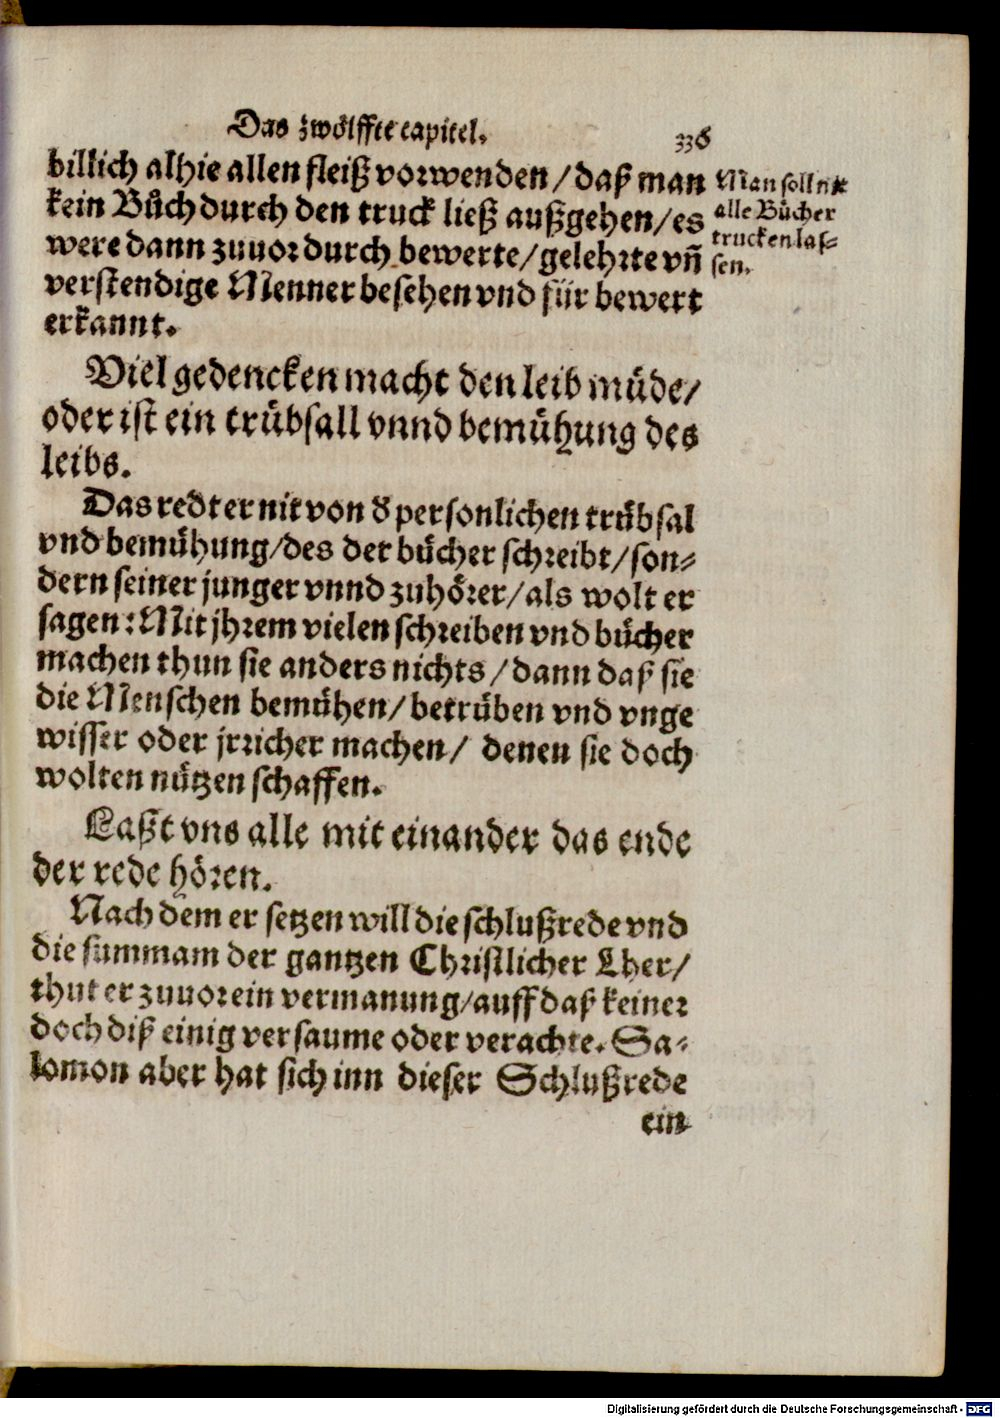 Das zwölffte capitel.
336
billich alhie allen fleiß vorwenden/daß man
kein Bůch durch den truck ließ außgehen/es
were dann zuuor durch bewerte/gelehrte vñ
verstendige Menner besehen vnd für bewert
erkannt.
Man soll nit
alle Bůcher
trucken las-
sen.
Viel gedencken macht den leib müde/
oder ist ein trübsall vnnd bemühung des
leibs.
Das redt er nit von d̕ personlichen trübsal
vnd bemühung/des der bücher schreibt/son-
dern seiner junger vnnd zuhörer/als wolt er
sagen: Mit jhrem vielen schreiben vnd bücher
machen thun sie anders nichts/dann daß sie
die Menschen bemühen/betrüben vnd vnge
wisser oder jrricher machen/ denen sie doch
wolten nützen schaffen.
Laßt vns alle mit einander das ende
der rede hören.
Nach dem er setzen will die schlußrede vnd
die summam der gantzen Christlicher Lher/
thut er zuuor ein vermanung/auff daß keiner
doch diß einig versaume oder verachte. Sa-
lomon aber hat sich inn dieser Schlußrede
ein
Digitalisierung gefördert durch die Deutsche Forschungsgemeinschaft - DFG